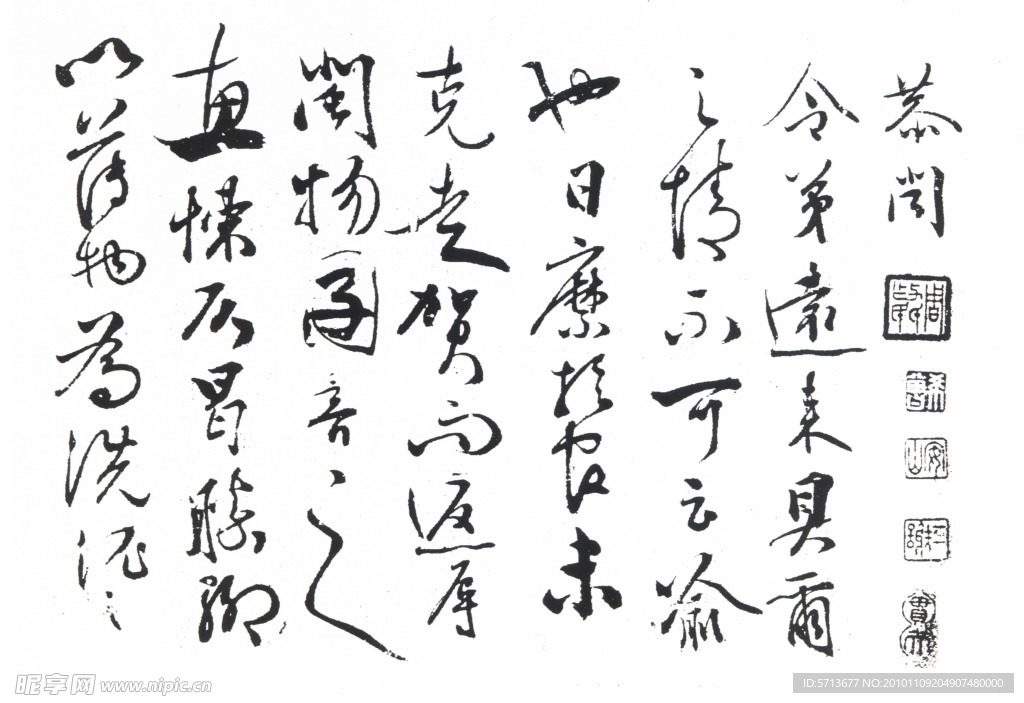 恭聞
令弟遠來具爾
之情不可云喻
也日縻於官未
克走賀而返辱
閩物函音之
惠悚仄曷勝聊
以薄物為洗泥
昵享网 www.nipic.cn
ID:5713677 NO:20101109204907480000